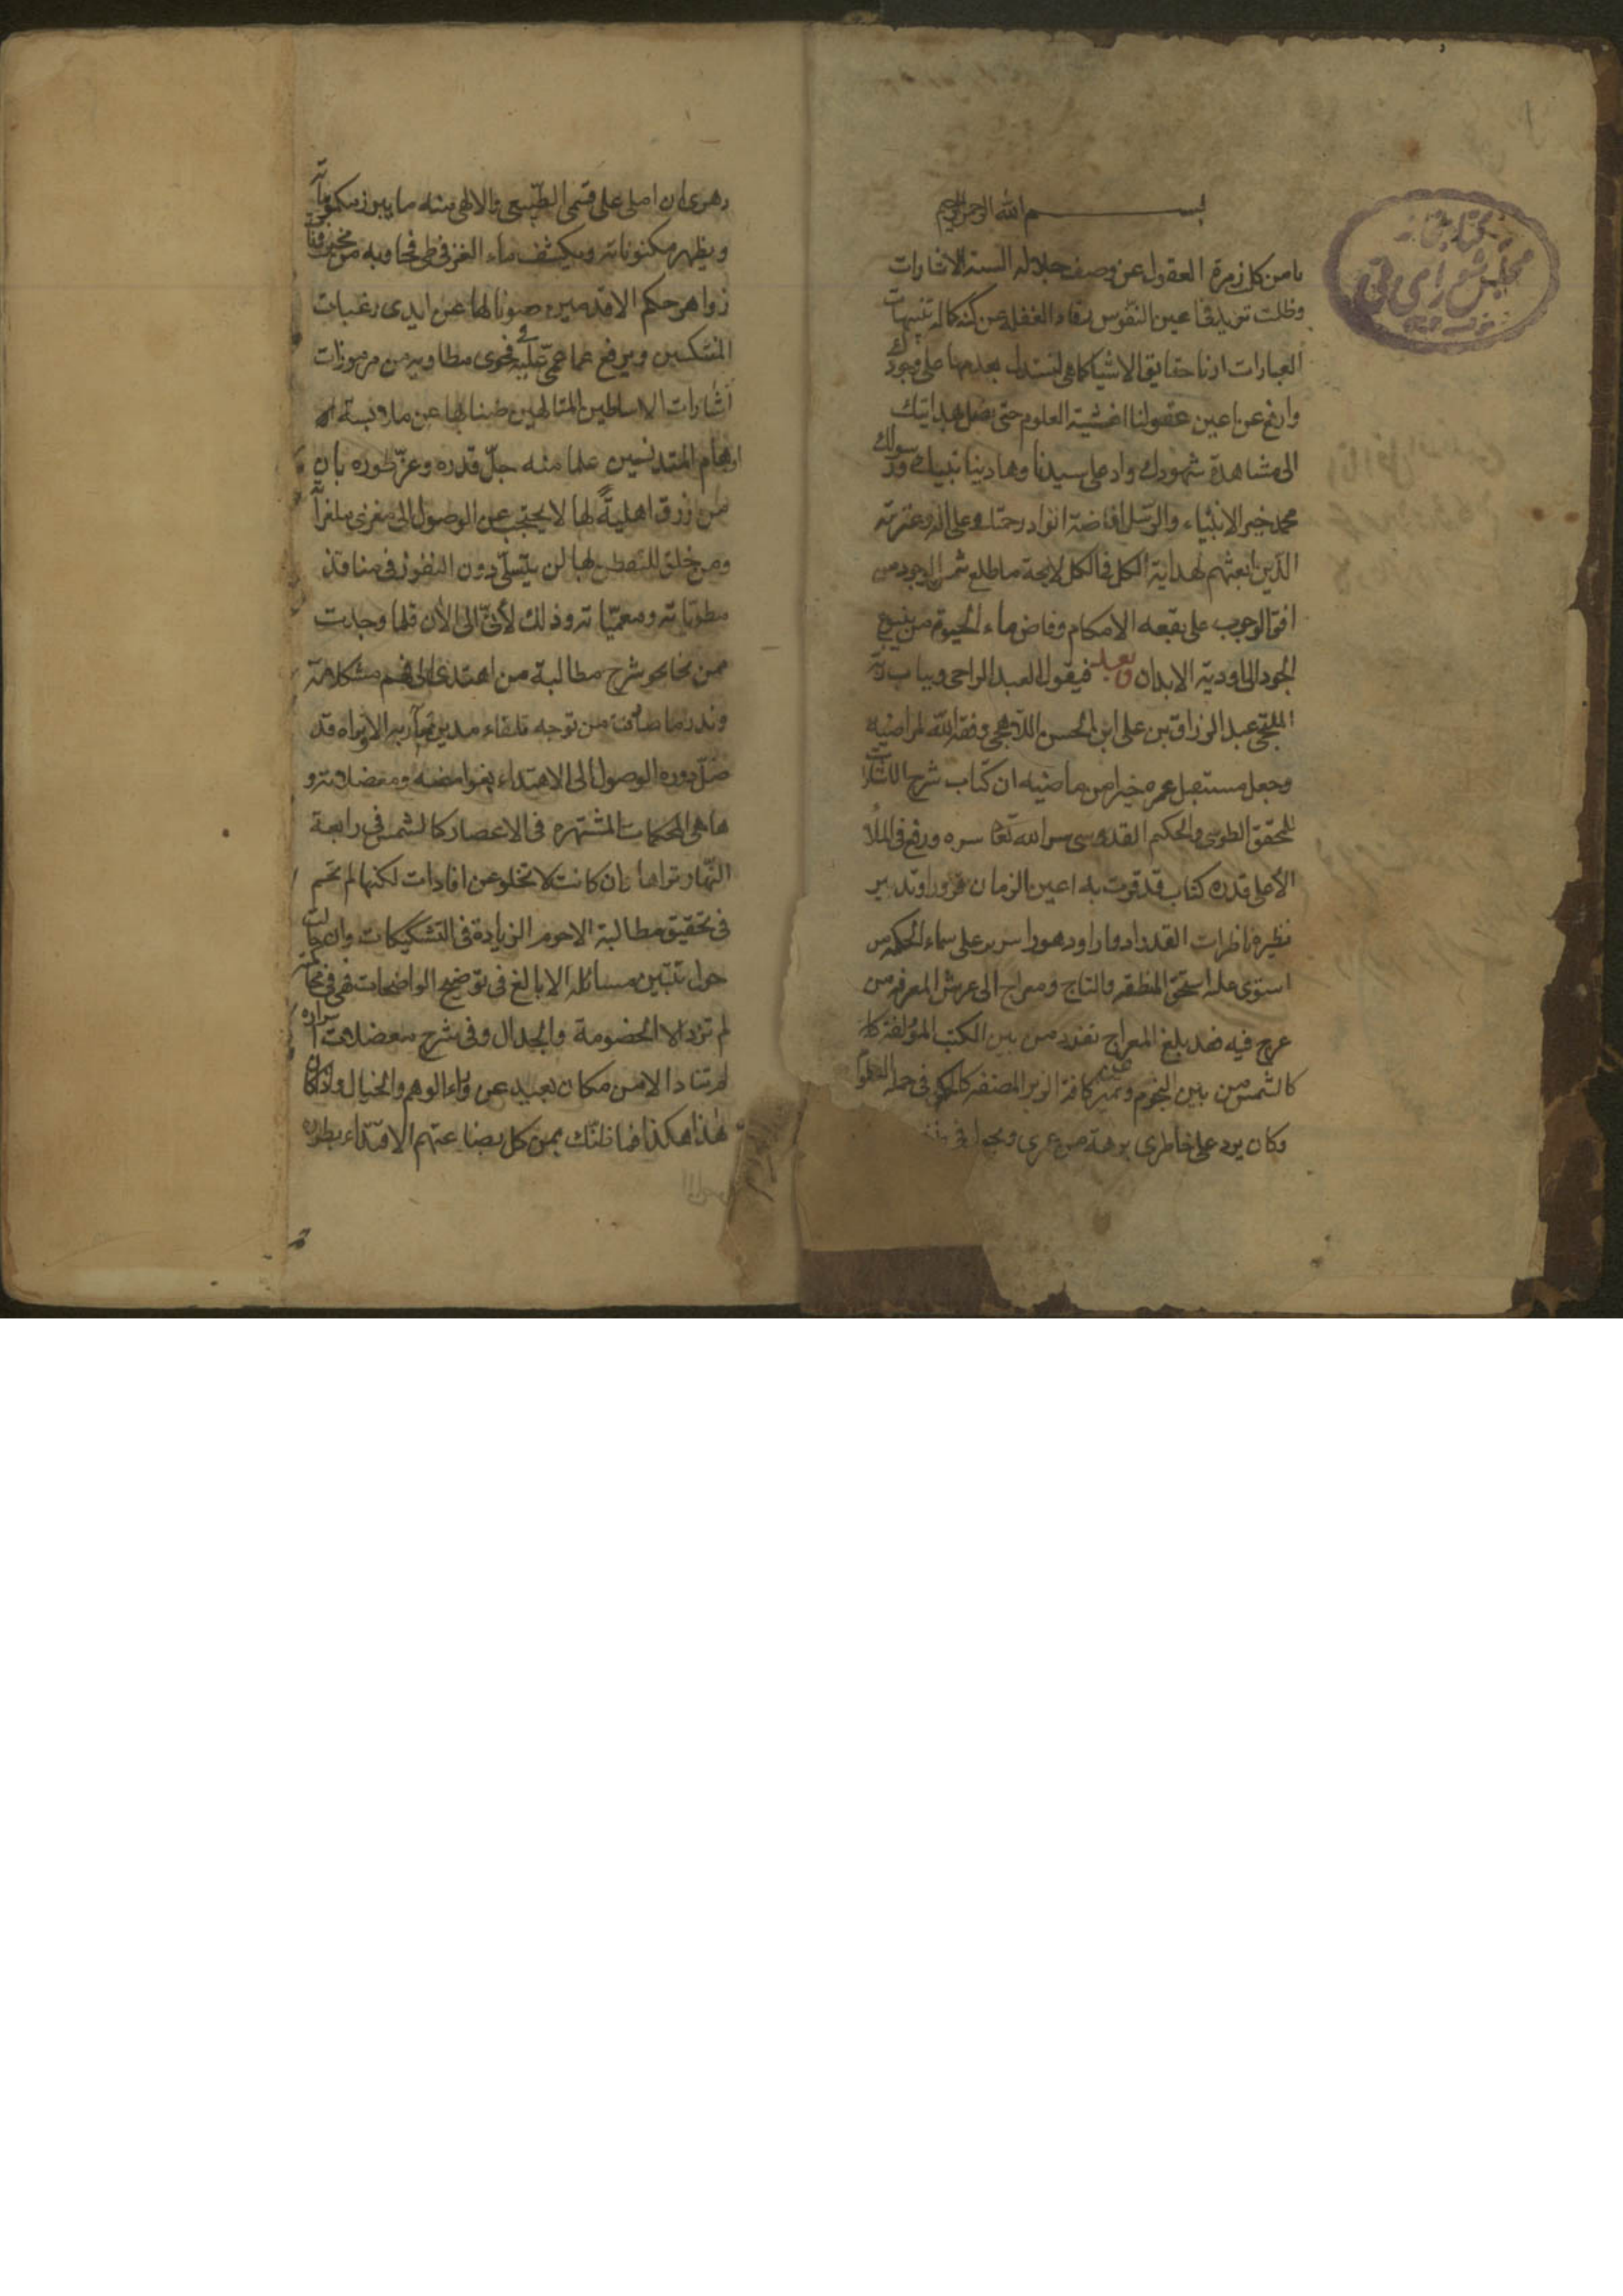 بسم الله الرحمن الرحيم
يا من كل زمرة العقول عن وصف جلاله السنة الاشارات
وظلت تزيد فى اعين النفوس رقاد الغفلة عن كنه كماله تنبيهات
العبارات ارنا حقايق الاشيا كما هى لنستدل بعدمها على وجودك
وارفع عن اعين عقولنا اغشية العلوم حتى نصل بهدايتك
الى مشاهدة شهودك وادم على سيدنا وهادينا نبيك ورسولك
محمد خير الانبياء والرسل افاضة انوار رحمتك وعلى اله وعترته
الذين بعثتهم لهداية الكل فى الكل لا بحة ما طلع شمس الوجود من
افق الوجوب على بقعه الامكام وفاض ماء الحيوة من ينبوع
الجود الى اودية الابدان وبعد فيقول العبد الراجى وبباب ربه
الملتجى عبد الرزاق بن على ابن الحسن اللاهجى وفقه الله لمراضيه
وجعل مستقبل عمره خيرا من ماضيه ان كتاب شرح الاشارات
للمحقق الطوسى والحكيم القدوسى سر الله تعا سره ورفع فى الملأ
الأعلى قدره كتاب قد قرت به اعين الزمان
نظيره ناظرات القدر ادوارا ودهورا سرير على سماء الحكمه من
استوى عليه استحق المنطقه والتاج ومعراج الى عرش المعرفه من
عرج فيه فقد بلغ المعراج تفرد من بين الكتب المؤلفة كلها
كالشمس من بين النجوم وتميز عن كافة الزبر المصنفه فى جملة العلوم
وكان يرد على خاطرى برهة من عمرى ويجول فى
دهرى ان املى على قسمى الطبيعى والالهى منه ما يبرز مكموناته
ويظهر مكنوناته ويكشف ماء الغز فى طى فحاويه من مخزونات
زواهر حكم الاقدمين صونا لها عن ايدى رغبات
المتشككين ويرفع عما عمى عليه فى فحوى مطاويه من مرموزات
اشارات الاساطين المتالهين ضنا بها عن ملابسة الا
اوهام المتدنسين علما منه جل قدره وعز طوره بان
من رزق اهلية لها لا يحتجب عن الوصول الى مغزى ملغزاته
ومن خلق للتفطن بها لن يتسلى دون النفوذ فى منافذ
مطوياته ومعمياته وذلك لأنى الى الأن قلما وجدت
ممن نحا نحو شرح مطالبة من اهتدى الى فهم مشكلاته
وندر ما صادفت من توجه تلقاء مدين مآربه الا وتراه قد
ضل دون الوصول الى الاهتداء بغوامضه ومعضلاته و
ها هى المحكمات المشتهره فى الاعصار كالشمس فى رابعة
النهار تراها وان كانت لا تخلو عن افادات لكنها لم تحم
فى تحقيق مطالبة الا حوم الزيادة فى التشكيكات وان جالت
حول تبيين مسائله الا بالغ فى توضيح الواضحات فهى فى محاكمة
لم تزد الا الخصومة والجدال وفى شرح معضلات اسراره
لم تناد الا من مكان بعيد عن وراء الوهم والخيال واذا كان
هذا هكذا فما ظنك بمن كل بضاعتهم الاقتداء بطوره